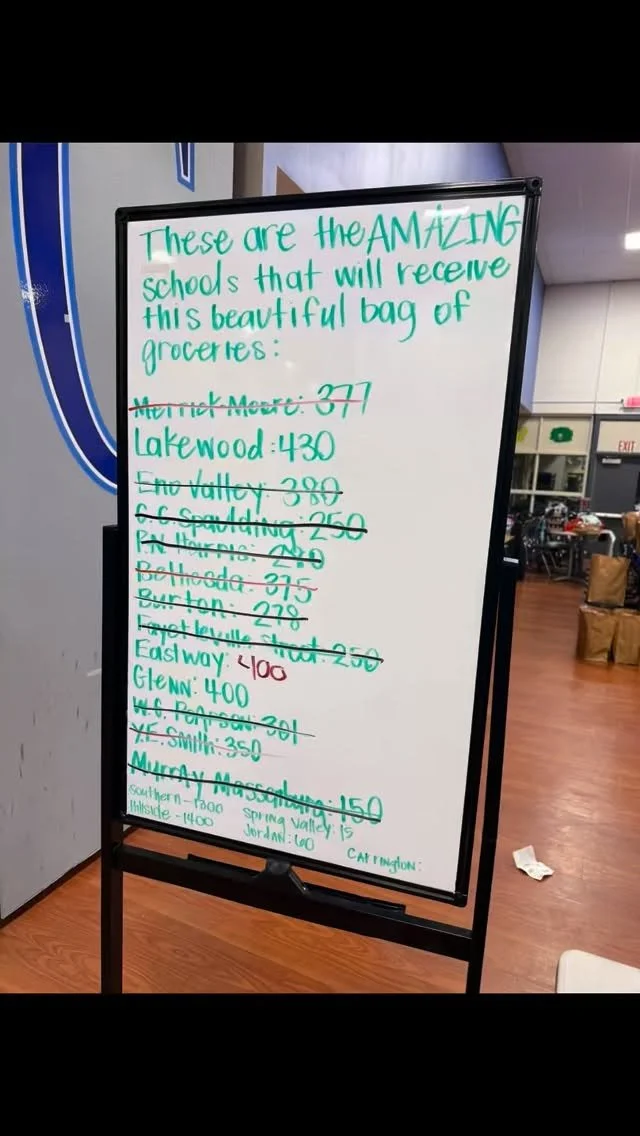 These are the AMAZING
schools that will receive
this beautiful bag of
groceries:
Merrick-Moore: 377
Lakewood: 430
Eno Valley: 380
C.C. Spaulding: 250
R.N. Harris:
Bethesda: 375
Burton: 278
Fayetteville Street: 250
Eastway: 400
Glenn: 400
W.G. Pearson: 301
Y.E. Smith: 350
Murray Massenburg: 150
Southern - 1300
Hillside - 1400
Spring Valley: 15
Jordan: 60
Carrington:
EXIT